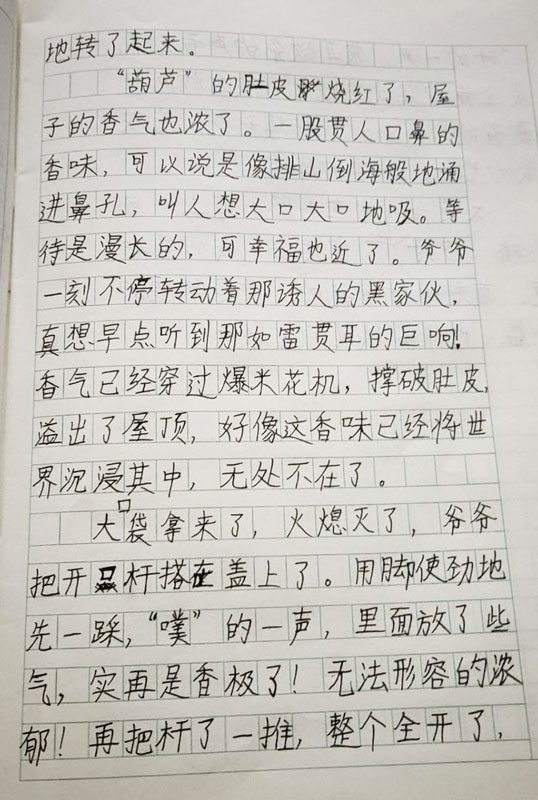 地转了起来。
“葫芦”的肚皮烧红了，屋
子的香气也浓了。一股贯人口鼻的
香味，可以说是像排山倒海般地涌
进鼻孔，叫人想大口大口地吸。等
待是漫长的，可幸福也近了。爷爷
一刻不停转动着那诱人的黑家伙，
真想早点听到那如雷贯耳的巨响！
香气已经穿过爆米花机，撑破肚皮，
溢出了屋顶，好像这香味已经将世
界沉浸其中，无处不在了。
大口袋拿来了，火熄灭了，爷爷
把开杆搭在盖上了。用脚使劲地
先一踩，“噗”的一声，里面放了些
气，实再是香极了！无法形容的浓
郁！再把杆了一推，整个全开了，